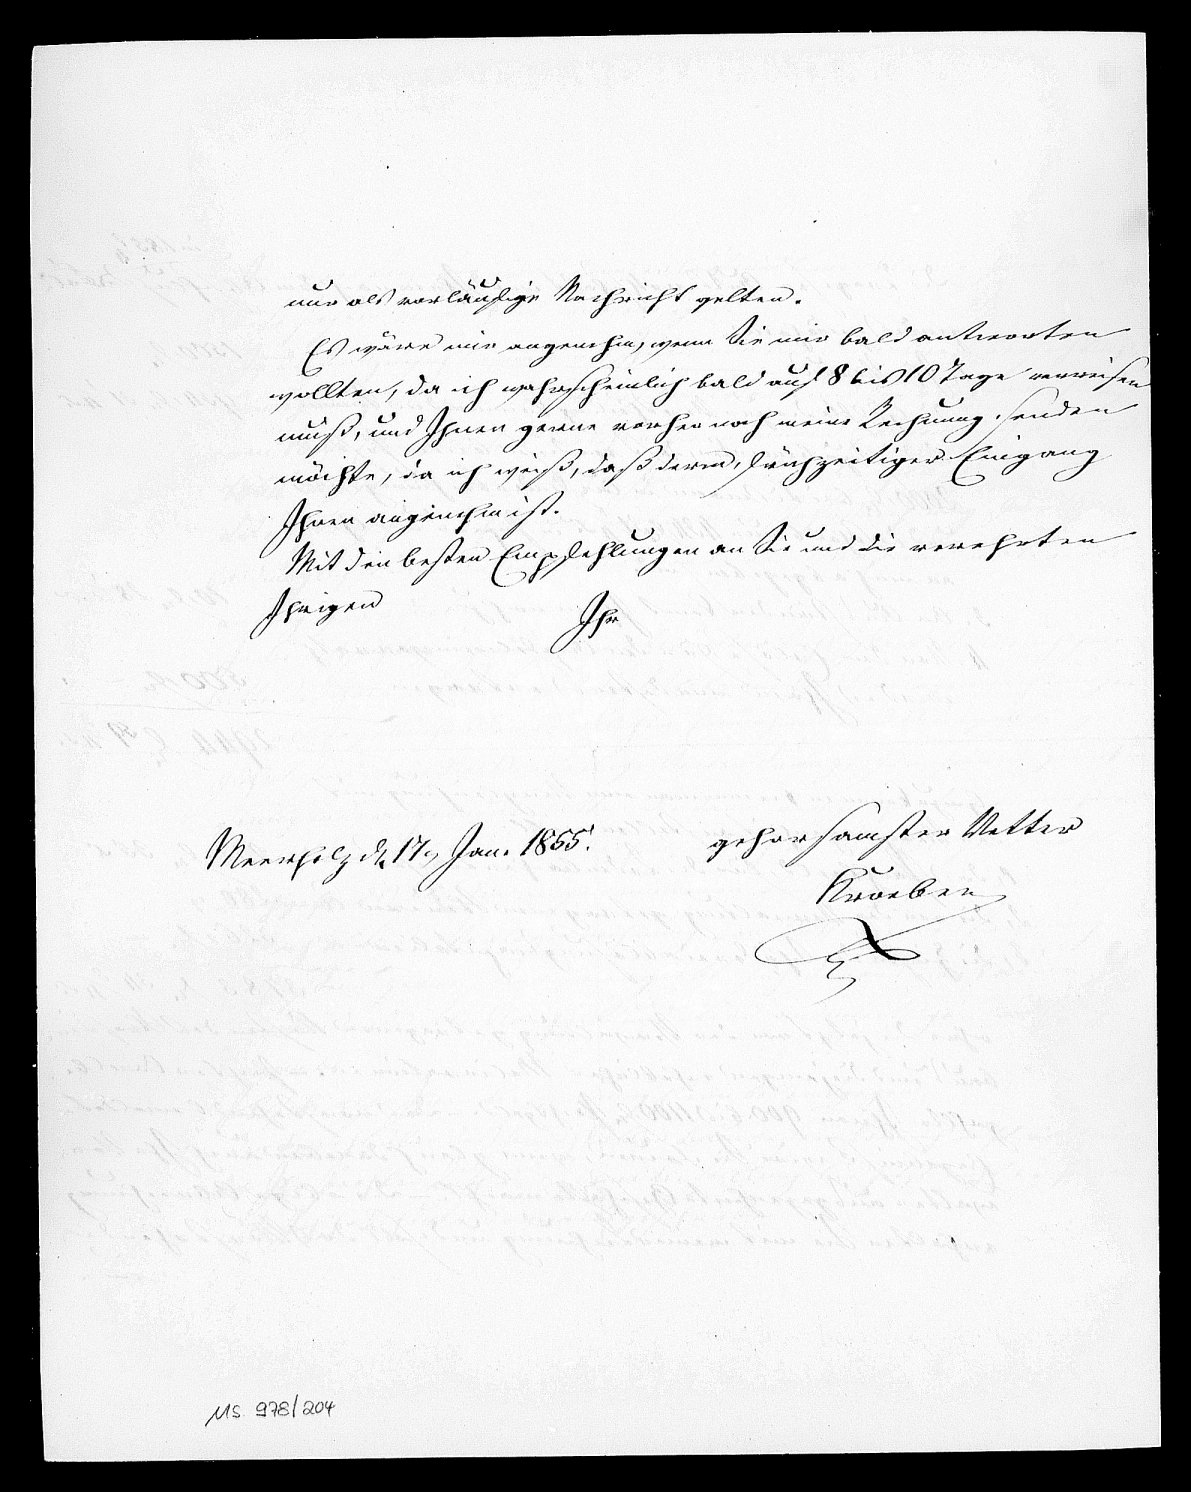 nur als vorläufige Nachricht gelten.
Es wäre mir angenehm, wenn Sie mir bald antworten
wollten, da ich wahrscheinlich bald auf 8 bis 10 Tage verreisen
muß, und Ihnen gerne vorher noch meine Rechnung senden
möchte, da ich weiß, daß deren frühzeitiger Eingang
Ihnen angenehm ist.
Mit den besten Empfehlungen an Sie und die verehrten
Ihrigen
Ihr
gehorsamster Vetter
Meerholz d. 17. Jan. 1855.
Kroeber
MS 978/204